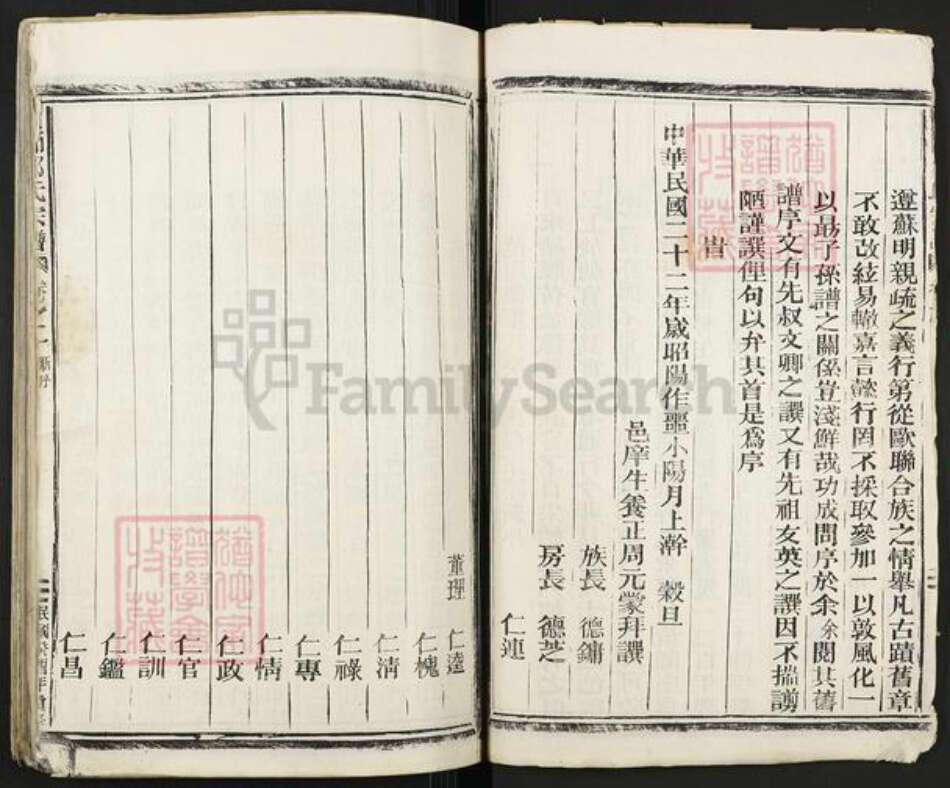 遵蘇明親疏之義行第從歐聯合族之情舉凡古蹟舊章
不敢改絃易轍嘉言懿行罔不採取參加一以敦風化一
以勗子孫譜之關係豈淺鮮哉功成問序於余余閱其舊
譜序文有先叔文卿之譔又有先祖友英之譔因不揣譾
陋謹譔俚句以弁其首是為序
旹
中華民國二十二年歲昭陽作噩小陽月上澣 穀旦
邑庠生養正周元蒙拜譔
族長 德鏞
房長 德芝
仁連
董理 仁逵
仁槐
仁清
仁祿
仁專
仁情
仁政
仁官
仁訓
仁鑑
仁昌
氏宗譜 卷之一 新序
民國癸酉年
FamilySearch